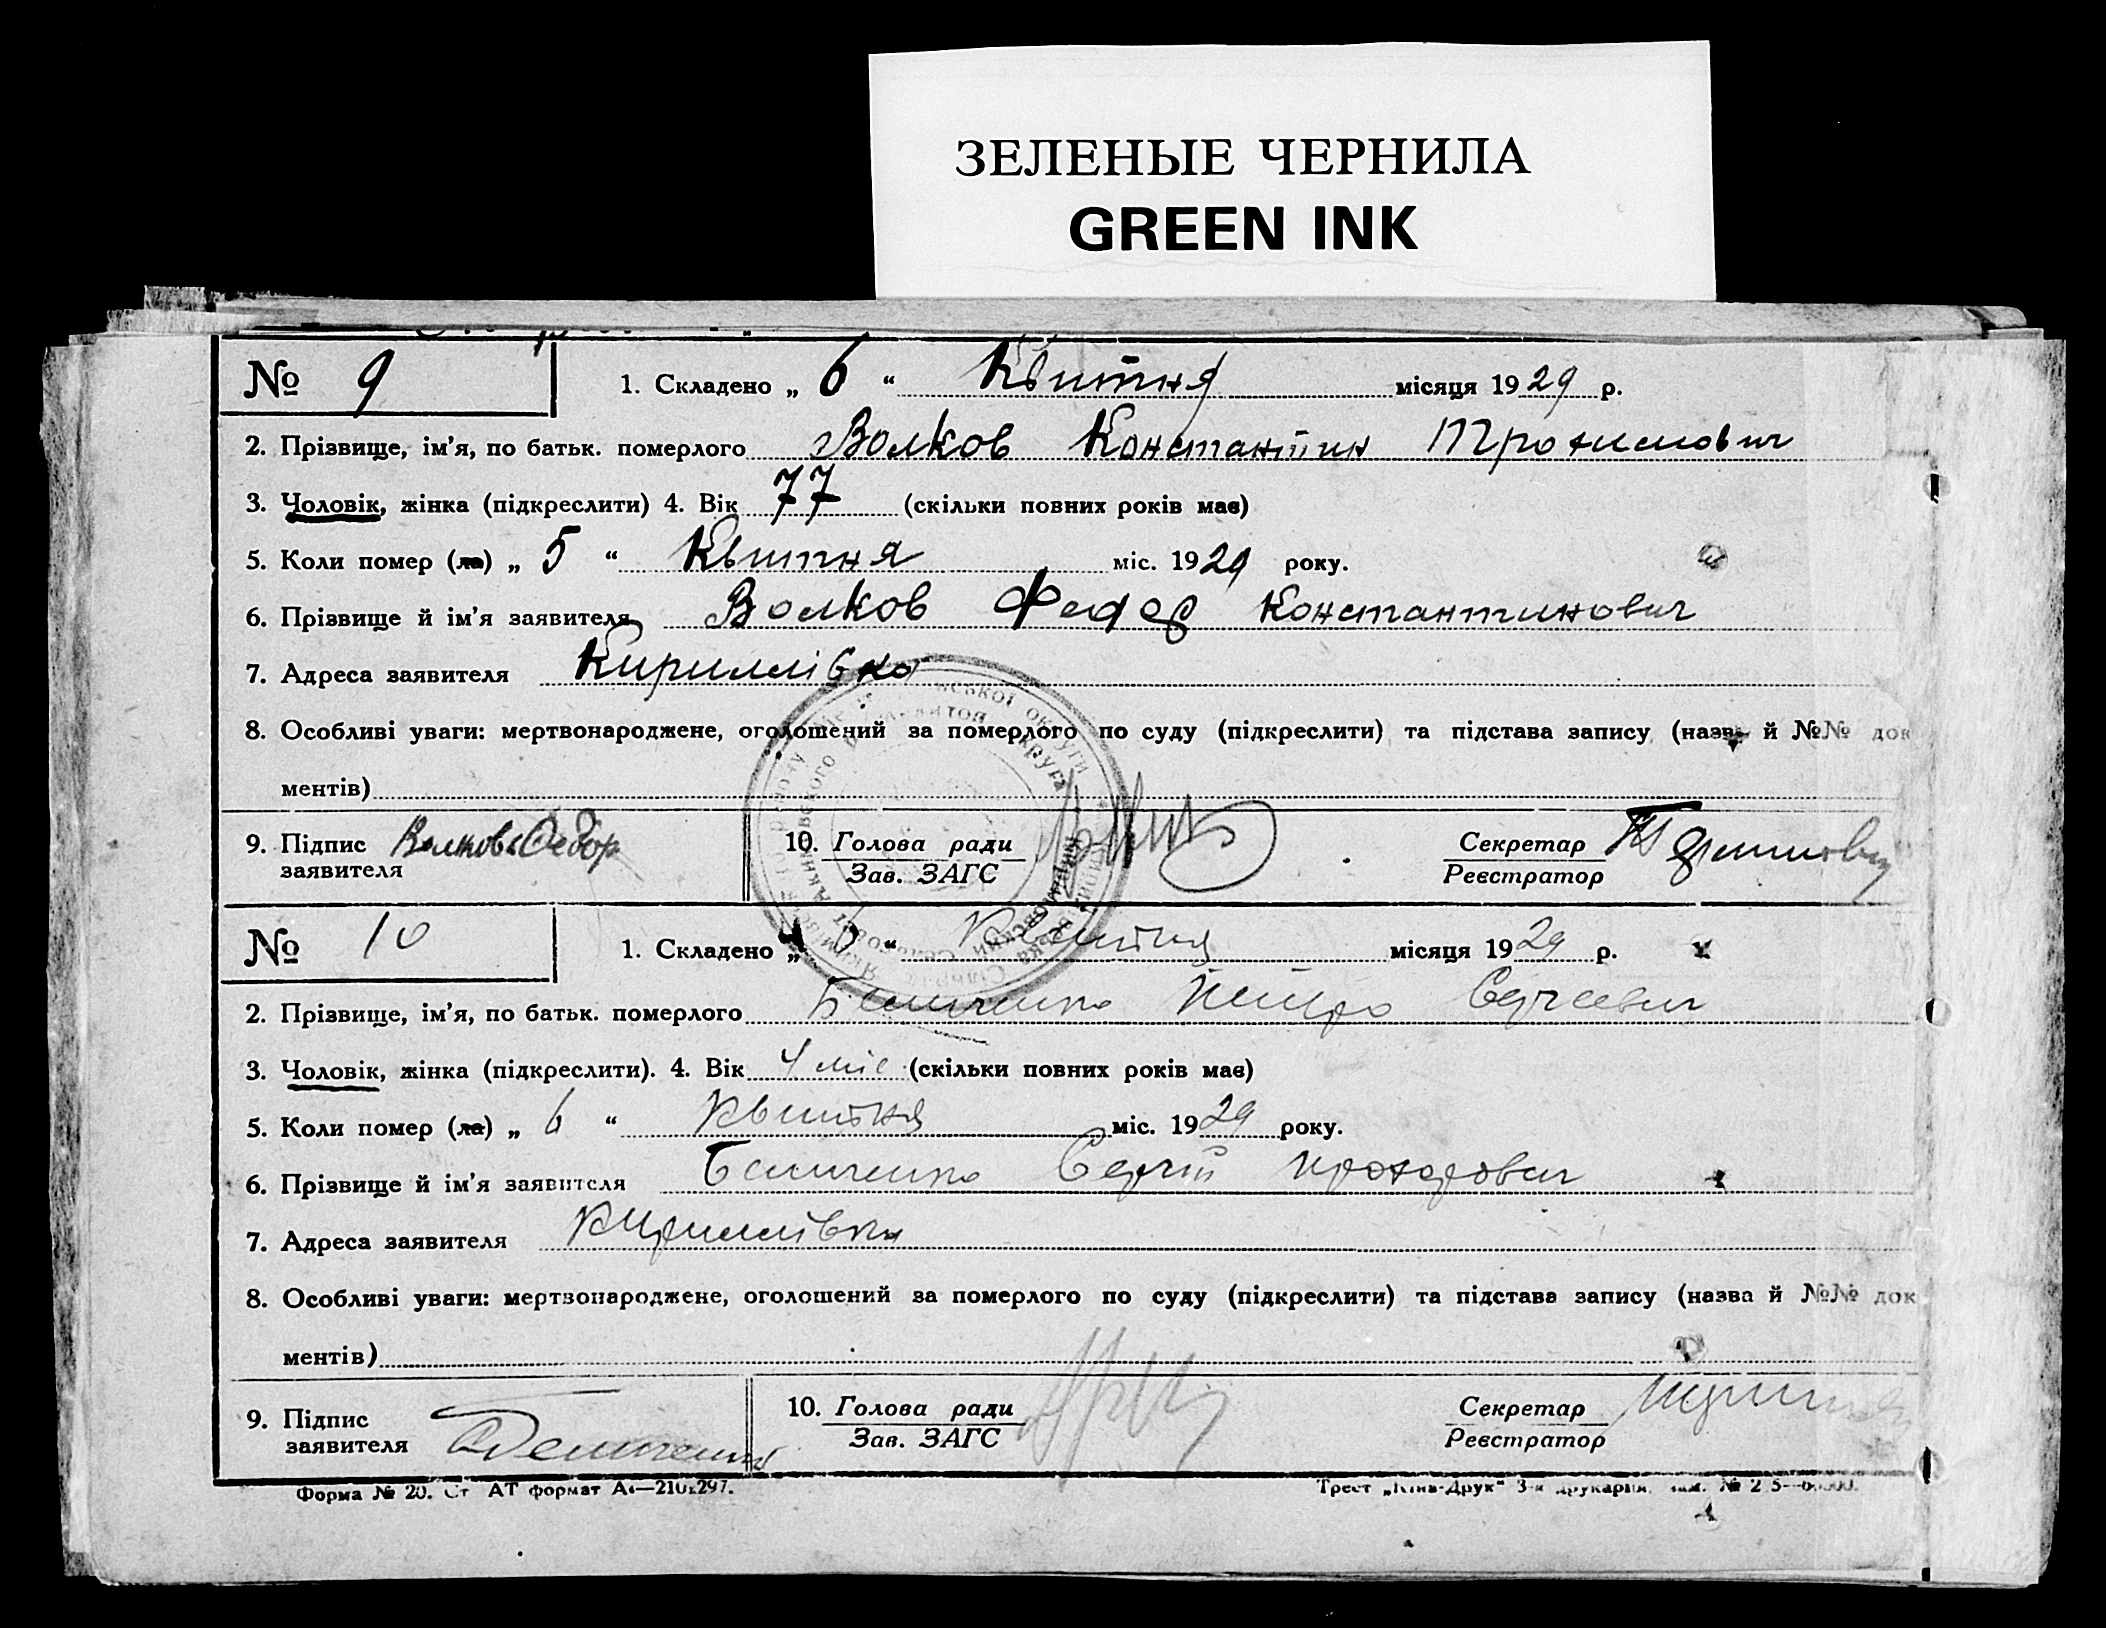 ЗЕЛЕНЫЕ ЧЕРНИЛА
GREEN INK
№ 9 1. Складено „ 6 “ Квитня місяця 1929 р.
2. Прізвище, ім'я, по батьк. померлого Волков Константин
3. Чоловік, жінка (підкреслити) 4. Вік 77 (скільки повних років має)
5. Коли помер (ла) „ 5 “ Квитня міс. 1929 року.
6. Прізвище й ім'я заявителя Волков Федор Константинович
7. Адреса заявителя Кириллівка
8. Особливі уваги: мертвонароджене, оголошений за померлого по суду (підкреслити) та підстава запису (назва й №№ док
ментів)
9. Підпис заявителя Волков Федор 10. Голова ради Зав. ЗАГС Секретар Реєстратор
№ 10 1. Складено „ “ Квитня місяця 1929 р.
2. Прізвище, ім'я, по батьк. померлого Петро Сергеевич
3. Чоловік, жінка (підкреслити). 4. Вік 4 міс (скільки повних років має)
5. Коли помер (ла) „ 6 “ Квитня міс. 1929 року.
6. Прізвище й ім'я заявителя Сергій Прохорович
7. Адреса заявителя Кириллівка
8. Особливі уваги: мертвонароджене, оголошений за померлого по суду (підкреслити) та підстава запису (назва й №№ док
ментів)
9. Підпис заявителя 10. Голова ради Зав. ЗАГС Секретар Реєстратор
Форма № 20. Ст АТ формат А4—210x297. Трест „Київ-Друк“ 3-я друкарня,